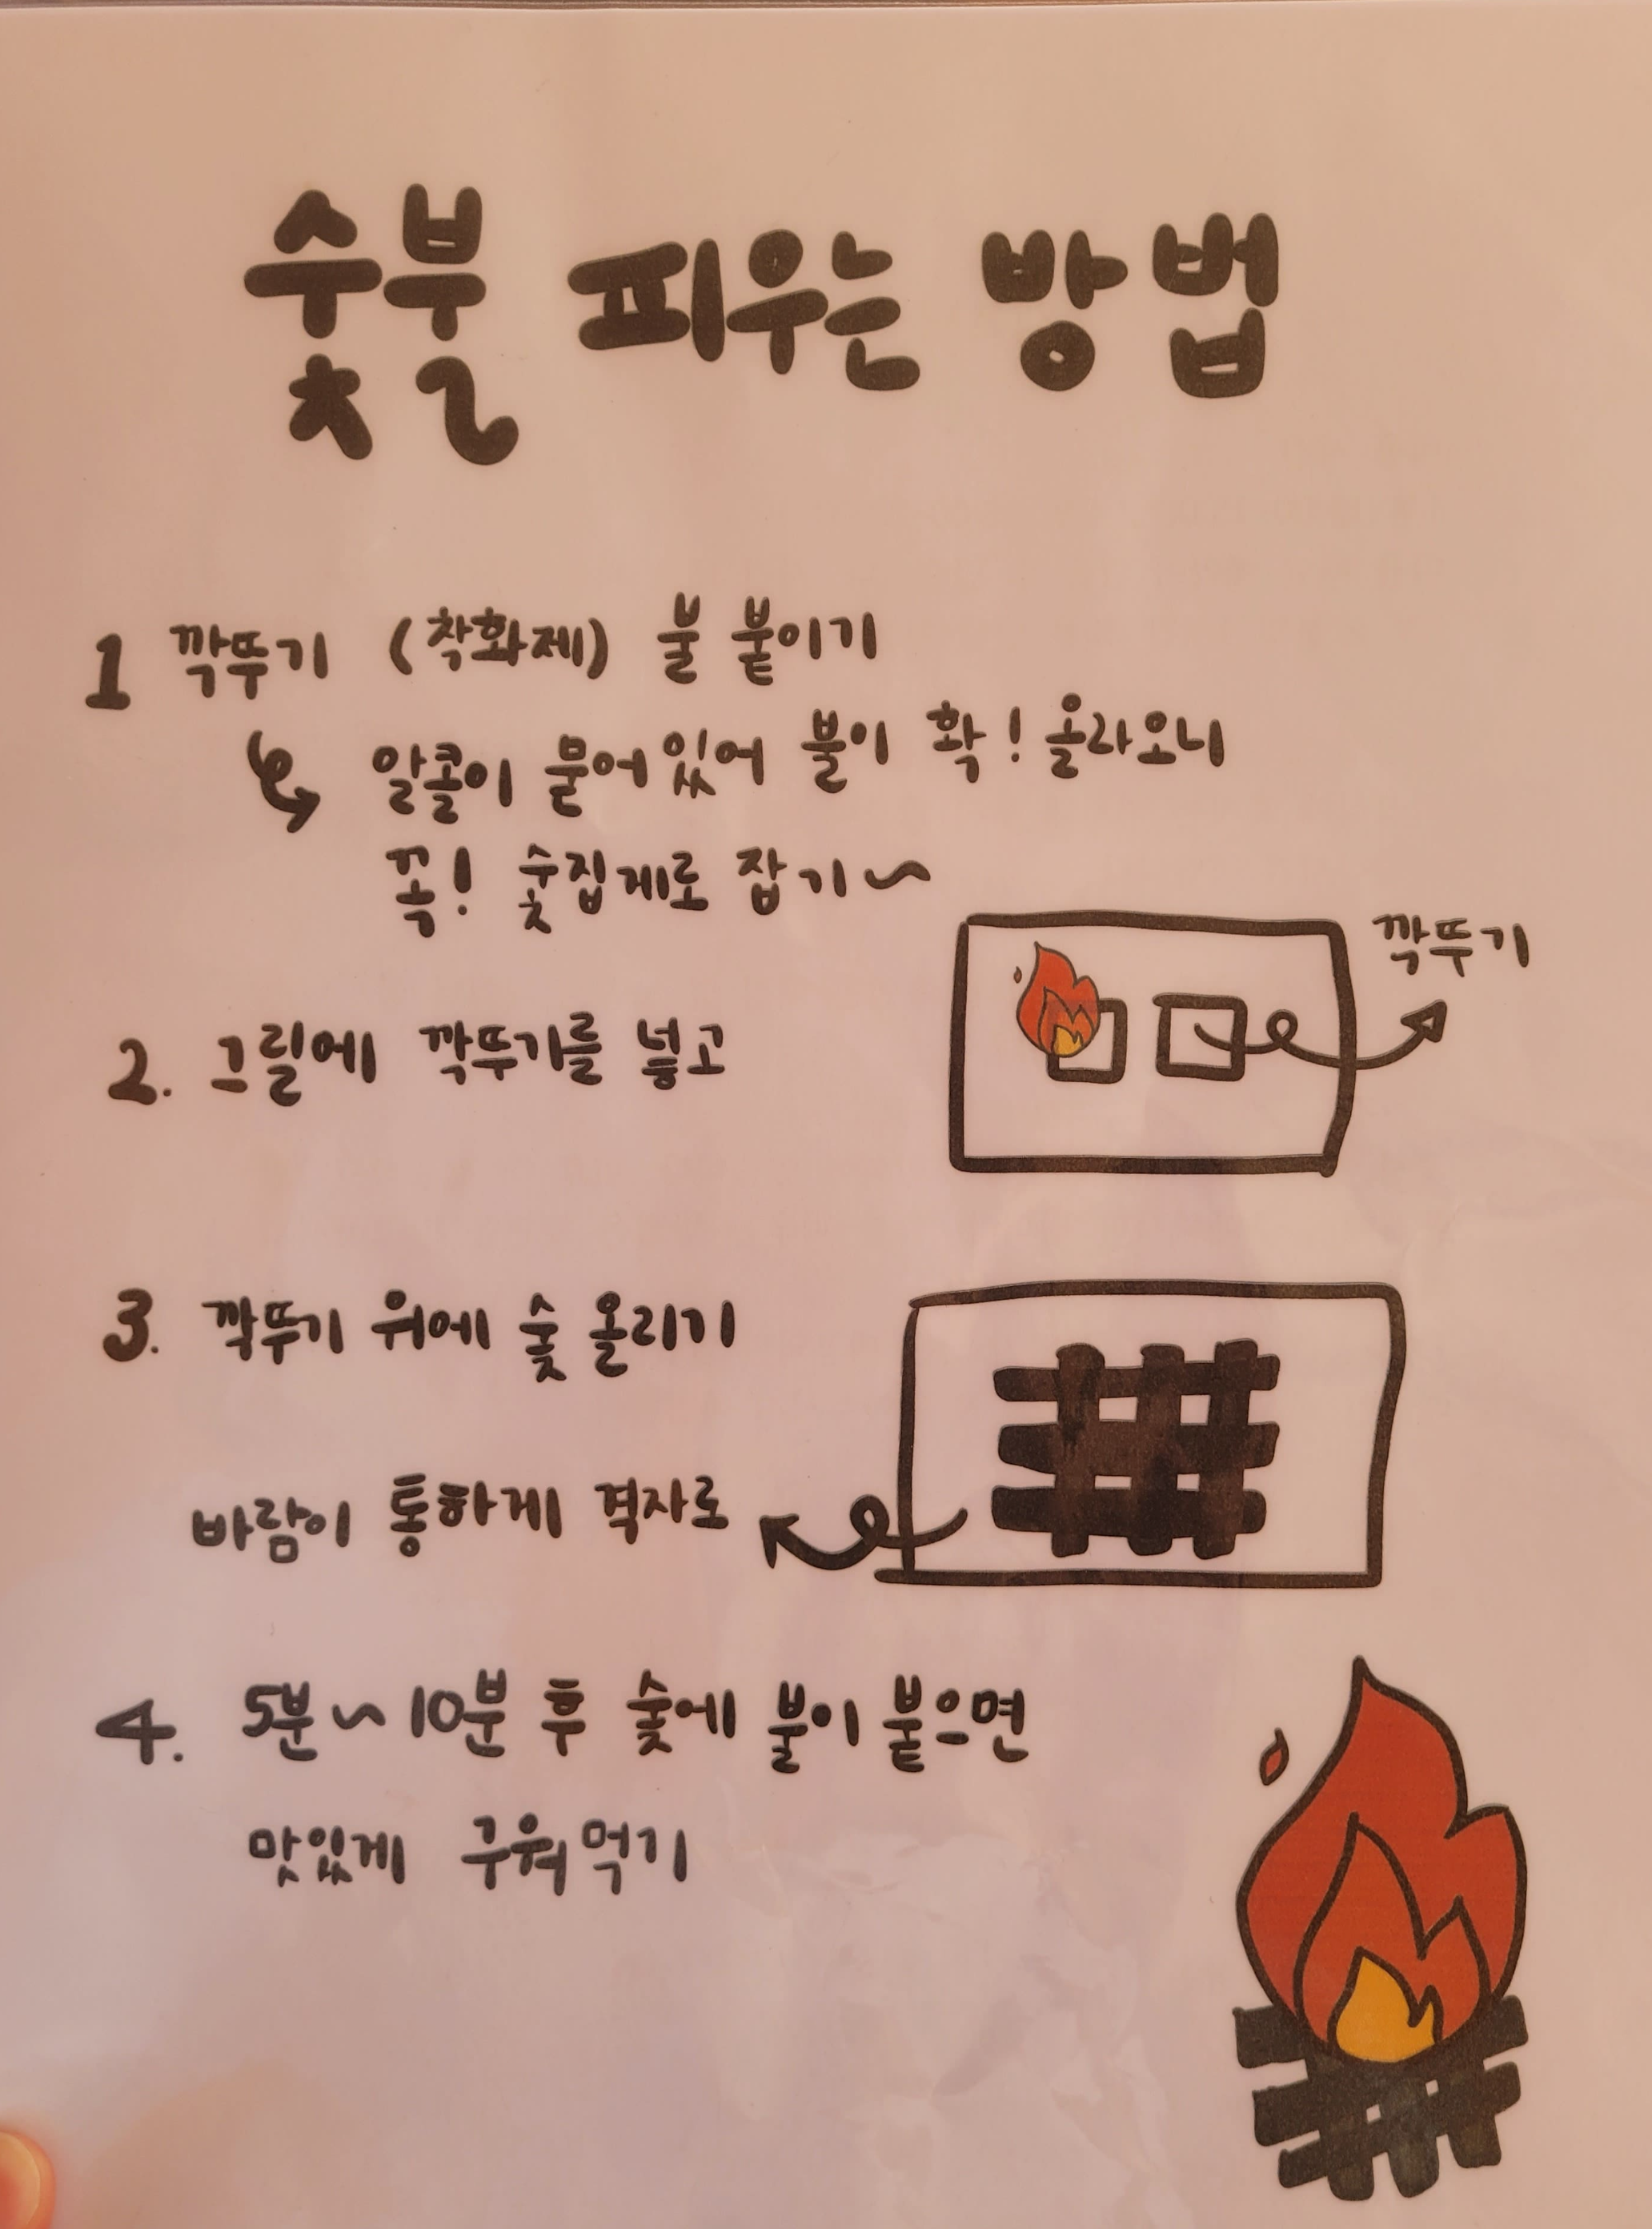 숯불 피우는 방법
1 깍뚜기 (착화제) 불 붙이기
알콜이 묻어있어 불이 확! 올라오니
꼭! 숯집게로 잡기~
깍뚜기
2. 그릴에 깍뚜기를 넣고
3. 깍뚜기 위에 숯 올리기
바람이 통하게 격자로
4. 5분~10분 후 숯에 불이 붙으면
맛있게 구워먹기